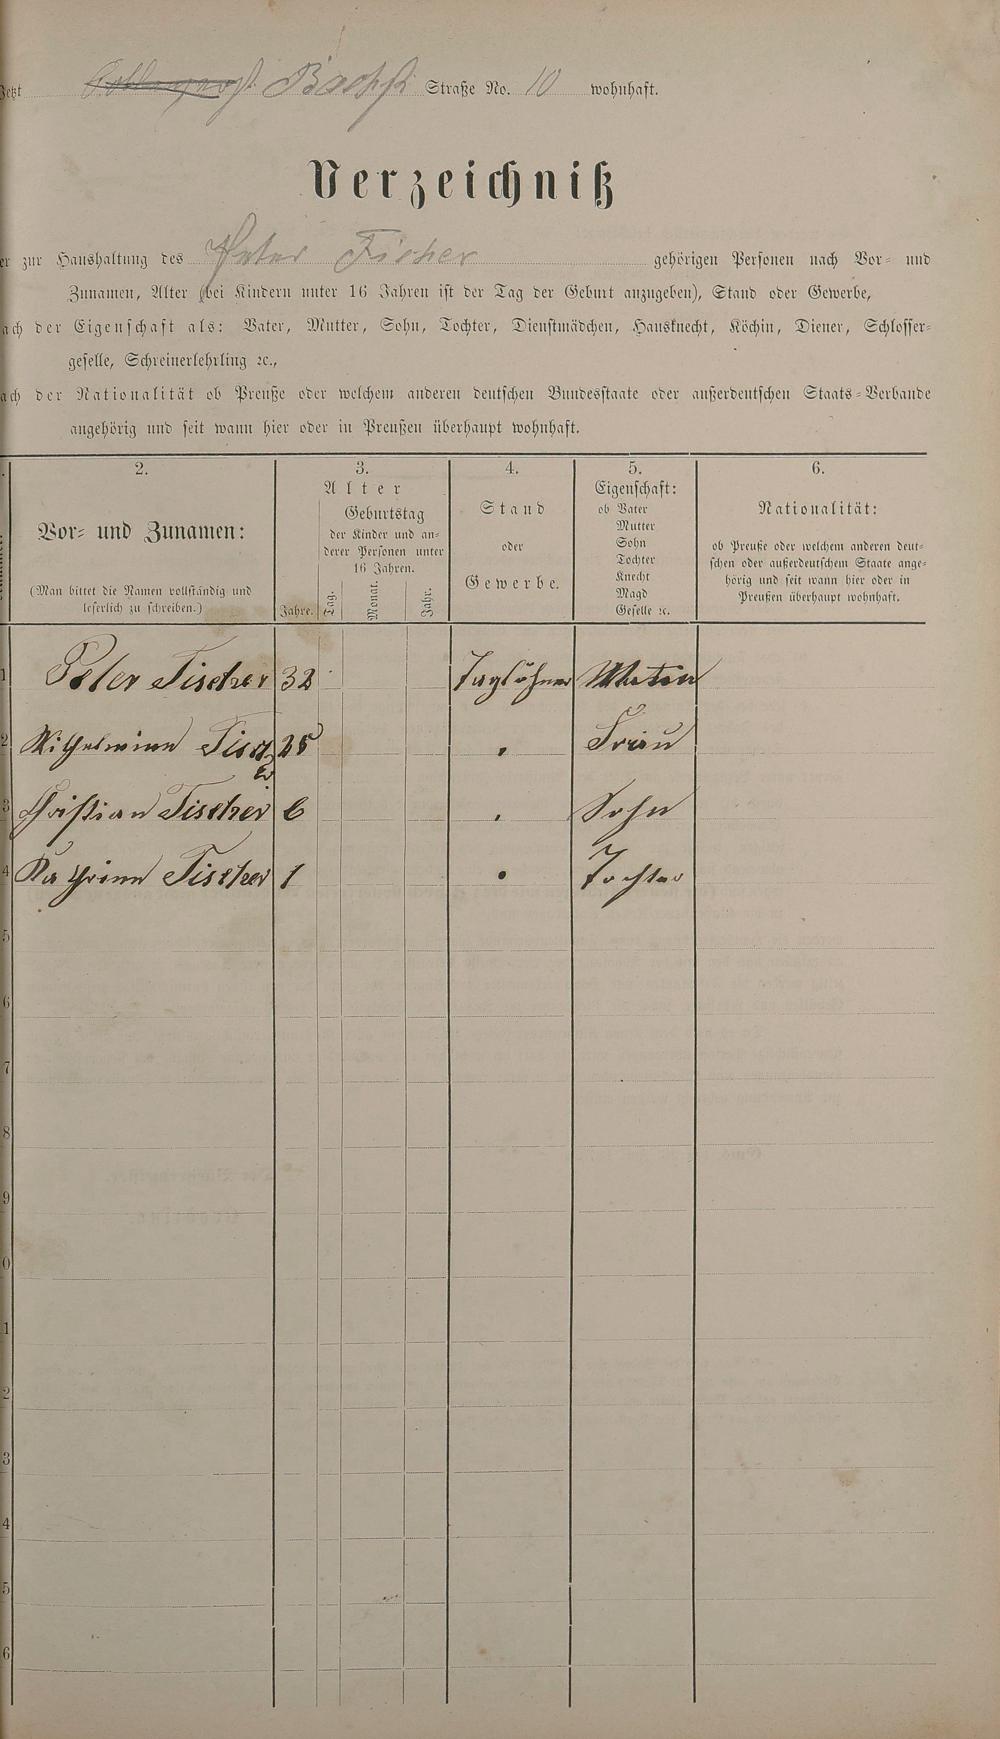 Jetzt Bachst Straße No. 10 wohnhaft.
Verzeichniß
er zur Haushaltung des Peter Fischer gehörigen Personen nach Vor- und
Zunamen, Alter (bei Kindern unter 16 Jahren ist der Tag der Geburt anzugeben), Stand oder Gewerbe,
ach der Eigenschaft als: Vater, Mutter, Sohn, Tochter, Dienstmädchen, Hausknecht, Köchin, Diener, Schlosser-
geselle, Schreinerlehrling ꝛc.,
ach der Nationalität ob Preuße oder welchem anderen deutschen Bundesstaate oder außerdeutschen Staats-Verbande
angehörig und seit wann hier oder in Preußen überhaupt wohnhaft.
2.
Vor- und Zunamen:
(Man bittet die Namen vollständig und
leserlich zu schreiben.)
3.
Alter
Jahre.
Geburtstag
der Kinder und an-
derer Personen unter
16 Jahren.
Tag.
Monat.
Jahr.
4.
Stand
oder
Gewerbe.
5.
Eigenschaft:
ob Vater
Mutter
Sohn
Tochter
Knecht
Magd
Geselle ꝛc.
6.
Nationalität:
ob Preuße oder welchem anderen deut-
schen oder außerdeutschem Staate ange-
hörig und seit wann hier oder in
Preußen überhaupt wohnhaft.
1 Peter Fischer 32 Taglöhner
2 Wilhelmine Fischer 25 " Frau
3 Christian Fischer 6 " Sohn
4 Kathrine Fischer 1 " Tochter
5
6
7
8
9
0
1
2
3
4
5
6